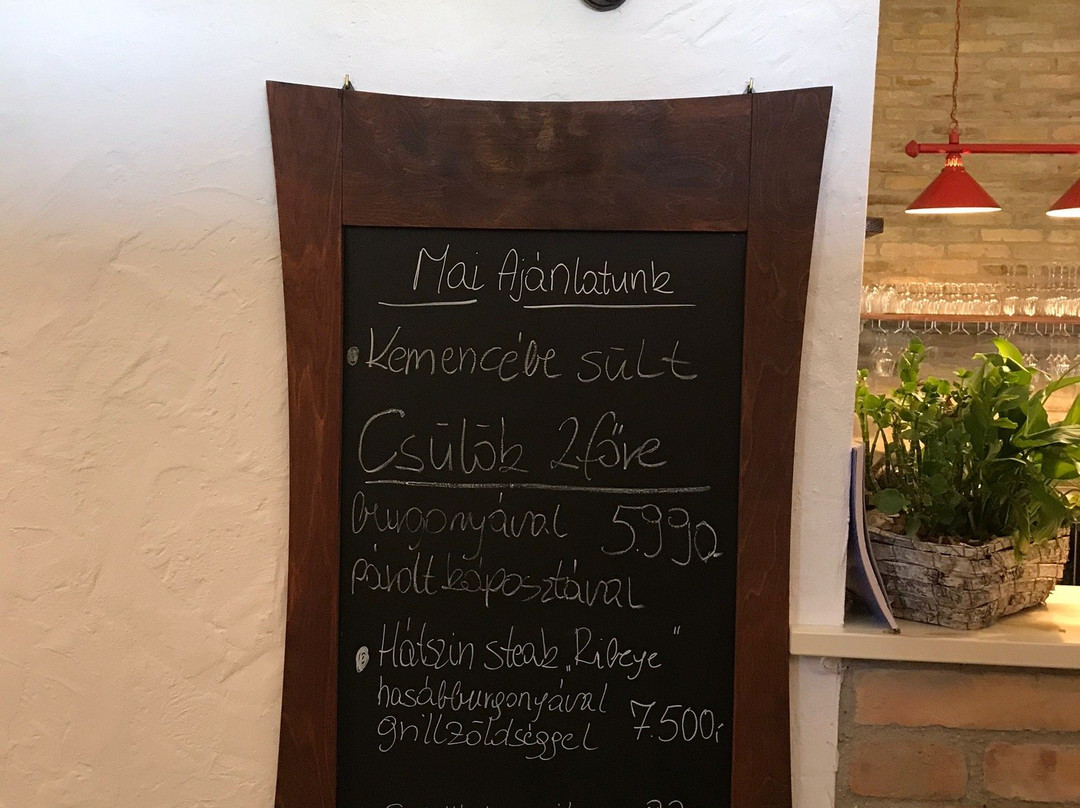 Mai Ajánlatunk
Kemencébe sūlt
Csūlők 2főre
burgonyával 5.990.
párolt káposztával
Hátszin steak „Ribeye"
hasábburgonyával
grillzöldséggel 7.500,